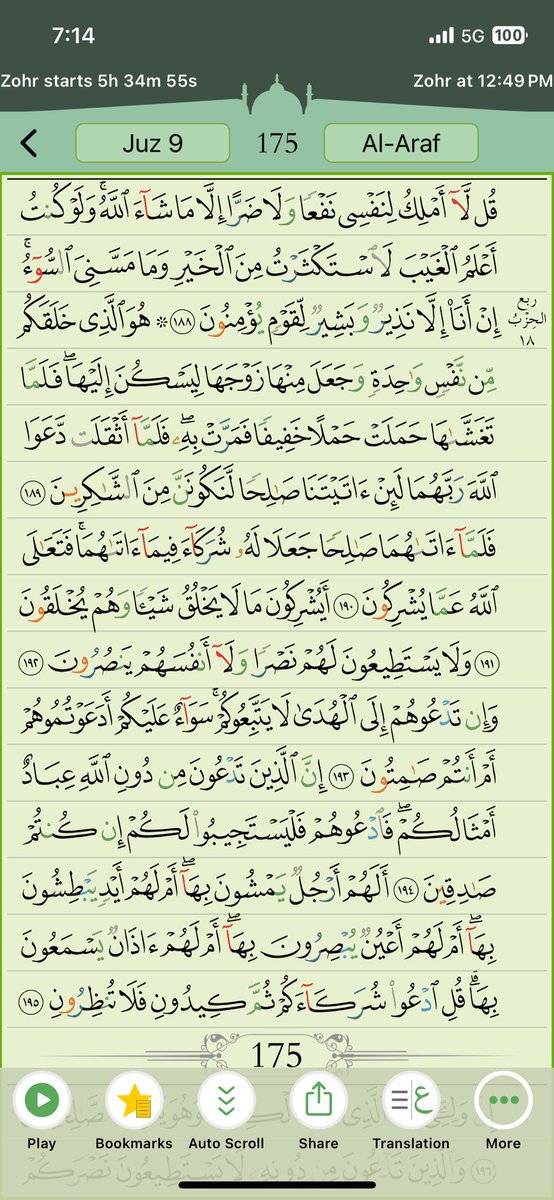 7:14 5G 100
Zohr starts 5h 34m 55s Zohr at 12:49 PM
Juz 9 175 Al-Araf
قُل لَّآ أَمْلِكُ لِنَفْسِى نَفْعًا وَلَا ضَرًّا إِلَّا مَا شَآءَ ٱللَّهُ ۚ وَلَوْ كُنتُ
أَعْلَمُ ٱلْغَيْبَ لَٱسْتَكْثَرْتُ مِنَ ٱلْخَيْرِ وَمَا مَسَّنِىَ ٱلسُّوٓءُ ۚ
إِنْ أَنَا۠ إِلَّا نَذِيرٌ وَبَشِيرٌ لِّقَوْمٍ يُؤْمِنُونَ ١٨٨ ۞ هُوَ ٱلَّذِى خَلَقَكُم
ربع الحزب ١٨
مِّن نَّفْسٍ وَٰحِدَةٍ وَجَعَلَ مِنْهَا زَوْجَهَا لِيَسْكُنَ إِلَيْهَا ۖ فَلَمَّا
تَغَشَّىٰهَا حَمَلَتْ حَمْلًا خَفِيفًا فَمَرَّتْ بِهِۦ ۖ فَلَمَّآ أَثْقَلَت دَّعَوَا
ٱللَّهَ رَبَّهُمَا لَئِنْ ءَاتَيْتَنَا صَٰلِحًا لَّنَكُونَنَّ مِنَ ٱلشَّٰكِرِينَ ١٨٩
فَلَمَّآ ءَاتَىٰهُمَا صَٰلِحًا جَعَلَا لَهُۥ شُرَكَآءَ فِيمَآ ءَاتَىٰهُمَا ۚ فَتَعَٰلَى
ٱللَّهُ عَمَّا يُشْرِكُونَ ١٩٠ أَيُشْرِكُونَ مَا لَا يَخْلُقُ شَيْـًٔا وَهُمْ يُخْلَقُونَ
١٩١ وَلَا يَسْتَطِيعُونَ لَهُمْ نَصْرًا وَلَآ أَنفُسَهُمْ يَنصُرُونَ ١٩٢
وَإِن تَدْعُوهُمْ إِلَى ٱلْهُدَىٰ لَا يَتَّبِعُوكُمْ ۚ سَوَآءٌ عَلَيْكُمْ أَدَعَوْتُمُوهُمْ
أَمْ أَنتُمْ صَٰمِتُونَ ١٩٣ إِنَّ ٱلَّذِينَ تَدْعُونَ مِن دُونِ ٱللَّهِ عِبَادٌ
أَمْثَالُكُمْ ۖ فَٱدْعُوهُمْ فَلْيَسْتَجِيبُوا۟ لَكُمْ إِن كُنتُمْ
صَٰدِقِينَ ١٩٤ أَلَهُمْ أَرْجُلٌ يَمْشُونَ بِهَآ ۖ أَمْ لَهُمْ أَيْدٍ يَبْطِشُونَ
بِهَآ ۖ أَمْ لَهُمْ أَعْيُنٌ يُبْصِرُونَ بِهَآ ۖ أَمْ لَهُمْ ءَاذَانٌ يَسْمَعُونَ
بِهَا ۗ قُلِ ٱدْعُوا۟ شُرَكَآءَكُمْ ثُمَّ كِيدُونِ فَلَا تُنظِرُونِ ١٩٥
175
وَٱلَّذِينَ تَدْعُونَ مِن دُونِهِۦ لَا يَسْتَطِيعُونَ نَصْرَكُمْ ١٩٦
Play Bookmarks Auto Scroll Share Translation More